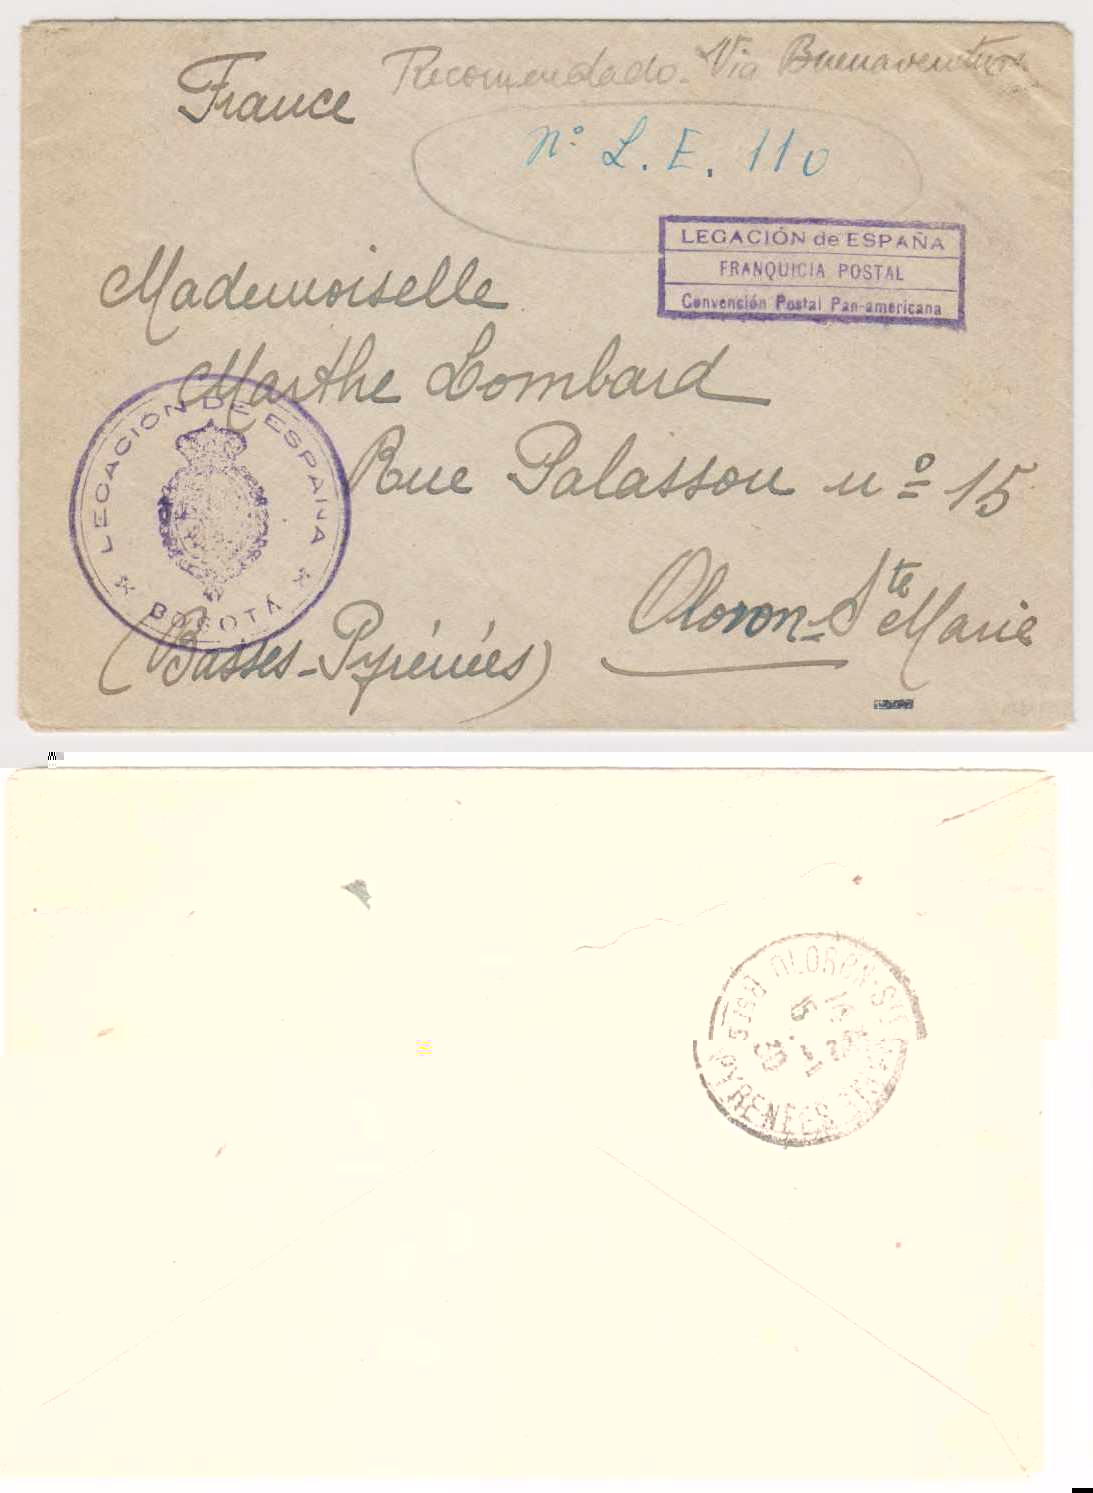 France
Recomendado. Via Buenaventura
Nº L. E. 110
LEGACIÓN de ESPAÑA
FRANQUICIA POSTAL
Convención Postal Pan-americana
Mademoiselle
Marthe Lombard
Rue Palassou nº 15
Oloron-Ste Marie
(Basses-Pyrénées)
LEGACIÓN DE ESPAÑA
BOGOTÁ
OLORON-STE
PYRENEES
30